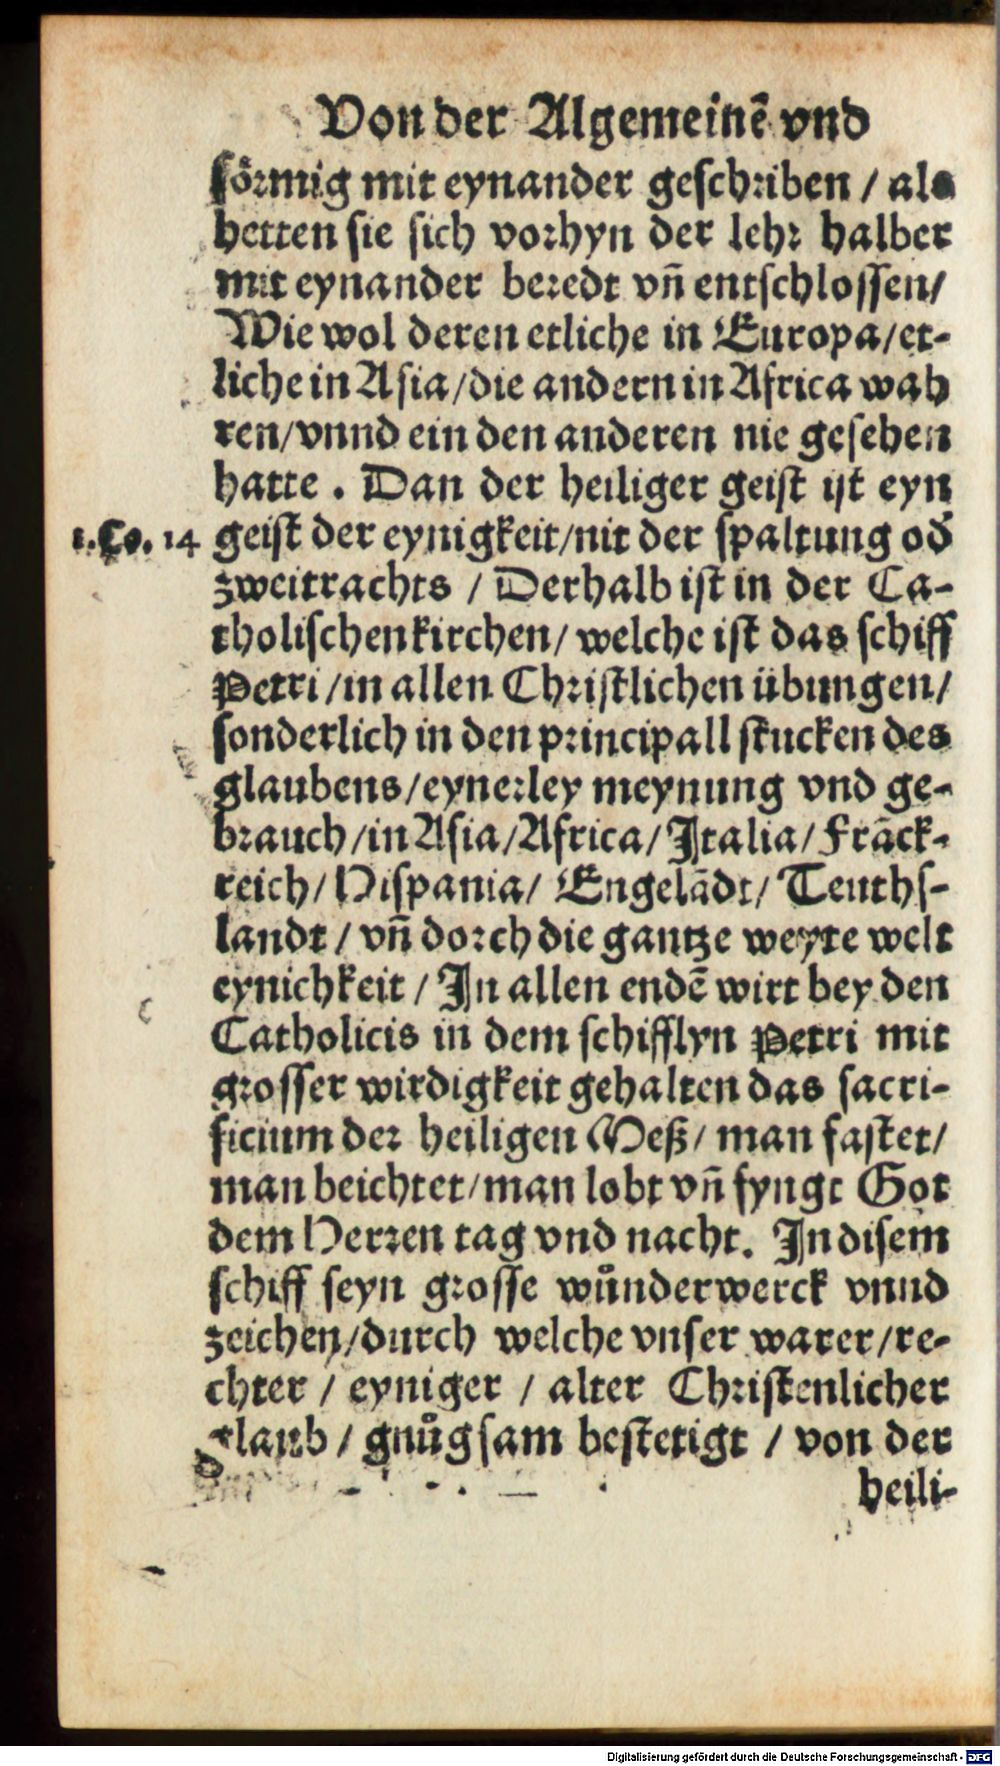 Von der Algemeinē vnd
förmig mit eynander geschriben / als
hetten sie sich vorhyn der lehr halber
mit eynander beredt vñ entschlossen/
Wie wol deren etliche in Europa/et-
liche in Asia/die andern in Africa wah
ren/vnnd ein den anderen nie gesehen
hatte . Dan der heiliger geist ist eyn
1. Co. 14 geist der eynigkeit/nit der spaltung od̄
zweitrachts / Derhalb ist in der Ca-
tholischen kirchen/ welche ist das schiff
Petri/in allen Christlichen übungen/
sonderlich in den principall stucken des
glaubens/eynerley meynung vnd ge-
brauch/in Asia/Africa/Italia/Frāck-
reich/Hispania/ Engelādt/ Teuths-
landt / vñ dorch die gantze weyte welt
eynichkeit / In allen endē wirt bey den
Catholicis in dem schifflyn Petri mit
grosser wirdigkeit gehalten das sacri-
ficium der heiligen Meß/ man fastet/
man beichtet/man lobt vñ syngt Got
dem Herren tag vnd nacht. In disem
schiff seyn grosse wůnderwerck vnnd
zeichen/durch welche vnser warer/re-
chter / eyniger / alter Christenlicher
glaub / gnůgsam bestetigt / von der
heili-
Digitalisierung gefördert durch die Deutsche Forschungsgemeinschaft - DFG